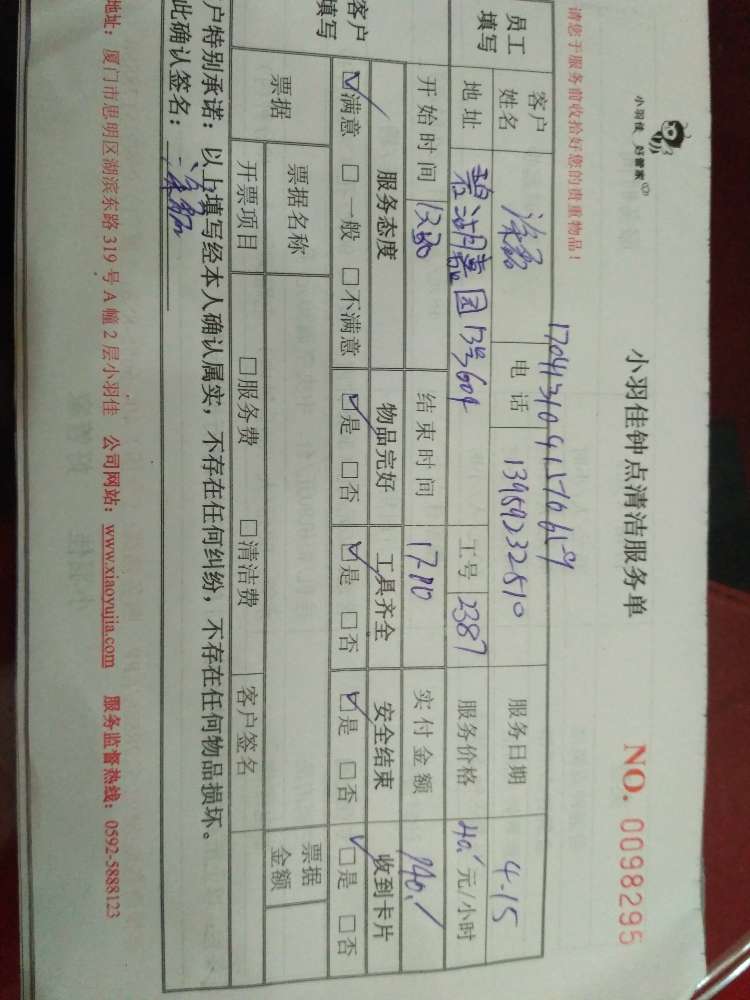 小羽佳 好管家
小羽佳钟点清洁服务单
NO. 0098295
请您于服务前收拾好您的贵重物品！
员工填写
客户姓名
电话 13959232510
服务日期 4-15
地址 碧湖嘉园13号604
工号 2387
服务价格 40 元/小时
开始时间 13:30
结束时间 17:00
实付金额 140
客户填写
服务态度 物品完好 工具齐全 安全结束 收到卡片
☑满意 □一般 □不满意 ☑是 □否 ☑是 □否 ☑是 □否 ☑是 □否
票据 票据名称 票据金额
开票项目 □服务费 □清洁费 客户签名
户特别承诺：以上填写经本人确认属实，不存在任何纠纷，不存在任何物品损坏。
此确认签名：
地址：厦门市思明区湖滨东路319号A幢2层小羽佳 公司网站：www.xiaoyujia.com 服务监督热线：0592-5888123